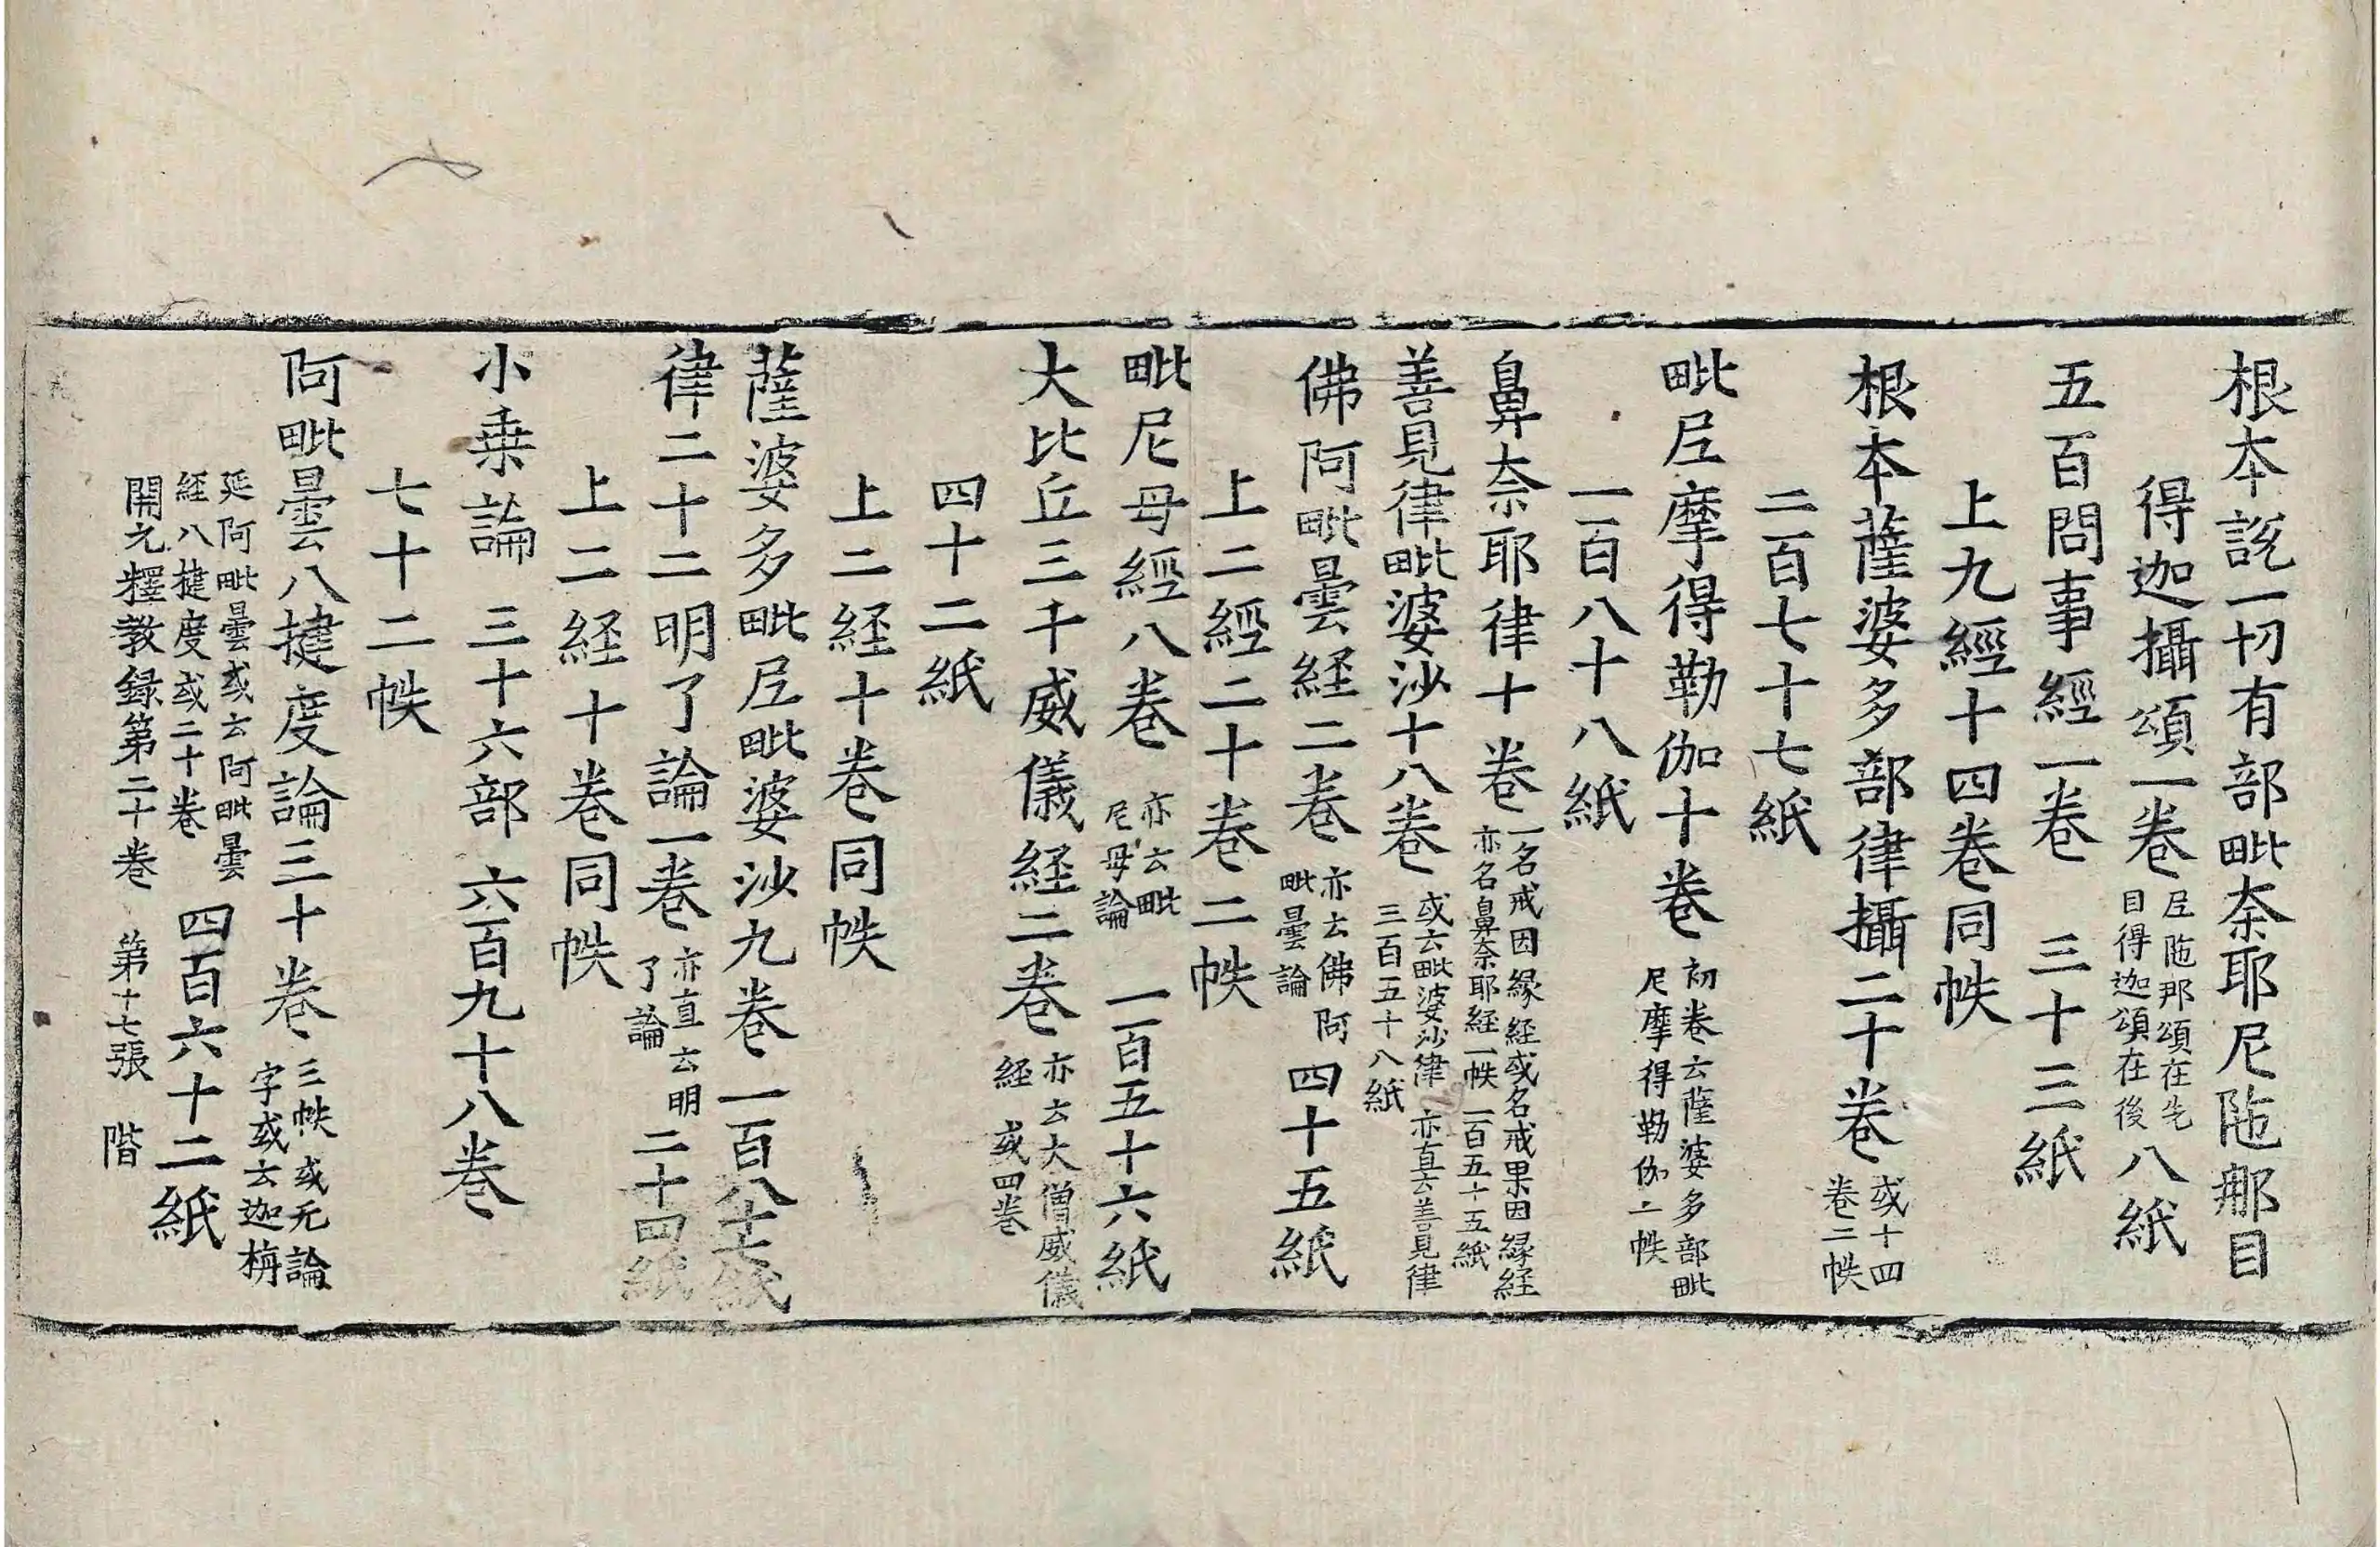 根本説一切有部毗奈耶尼陁那目
得迦攝頌一卷 尼陁那頌在先 目得迦頌在後 八紙
五百問事經一卷 三十三紙
上九經十四卷同帙
根本薩婆多部律攝二十卷 或十四 卷二帙
二百七十七紙
毗尼摩得勒伽十卷 初卷云薩婆多部毗 尼摩得勒伽二帙
一百八十八紙
鼻奈耶律十卷 一名戒因緣經或名戒果因緣経 亦名鼻奈耶経一帙 二百五十五紙
善見律毗婆沙十八卷 或云毗婆沙律 亦直云善見律 三百五十八紙
佛阿毗曇経二卷 亦云佛阿 毗曇論 四十五紙
上二經二十卷二帙
毗尼母經八卷 亦云毗 尼母論 一百五十六紙
大比丘三千威儀経二卷 亦云大僧威儀 経 或四卷
四十二紙
上二経十卷同帙
薩婆多毗尼毗婆沙九卷 一百八十七紙
律二十二明了論一卷 亦直云明 了論 二十四紙
上二経十卷同帙
小乗論 三十六部 六百九十八卷
七十二帙
阿毗曇八揵度論三十卷 三帙 或无論 字或云迦栴
延阿毗曇或云阿毗曇 経八揵度或二十卷 四百六十二紙
開元釋教録第二十卷 第十七張 階